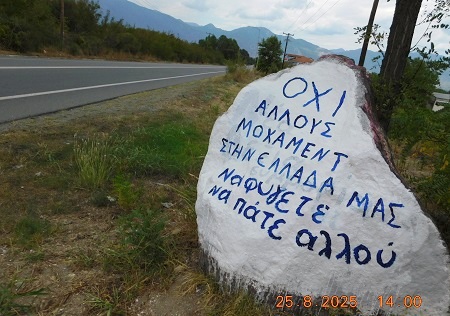 ΟΧΙ
ΑΛΛΟΥΣ
ΜΟΧΑΜΕΝΤ
ΣΤΗΝ ΕΛΛΑΔΑ ΜΑΣ
ΝΑ ΦΥΓΕΤΕ
ΝΑ ΠΑΤΕ ΑΛΛΟύ
25 8 2025 14:00